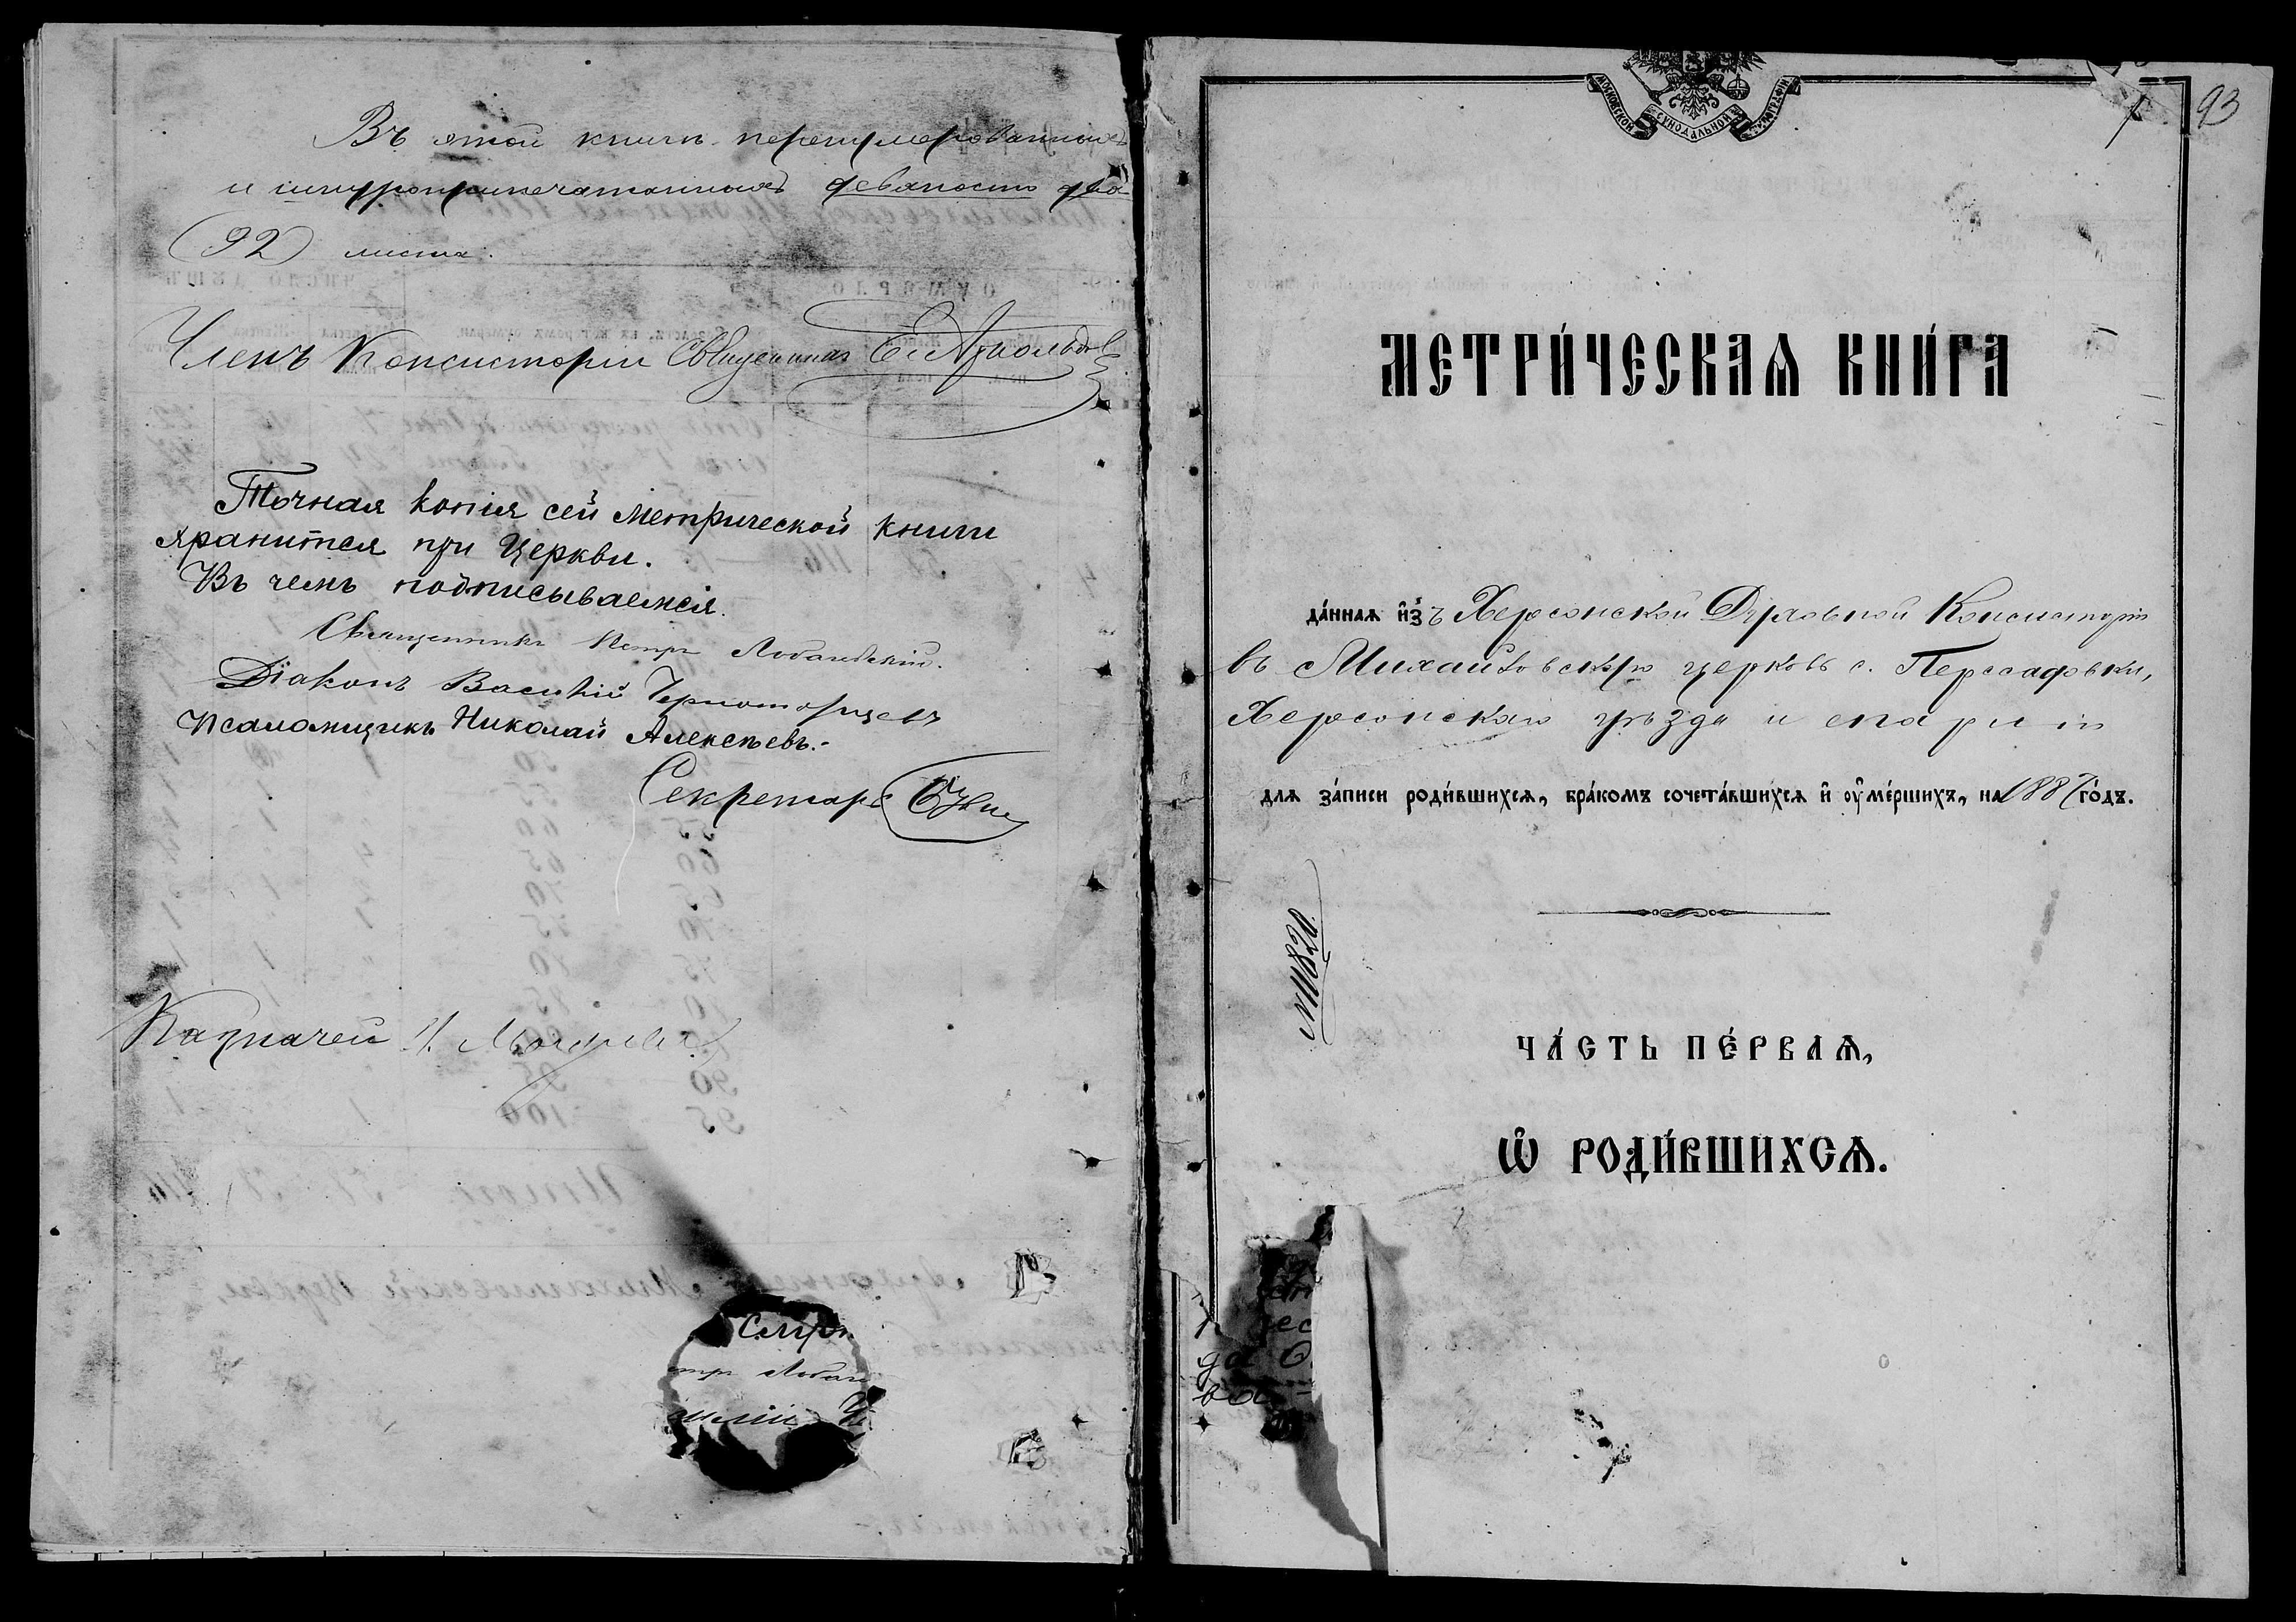 Въ этой книгѣ перенумерованныхъ
и шнуроприпечатанныхъ девяносто два
(92) листа.
Членъ Консисторіи Священникъ
Точная копія сей метрической книги
хранится при Церкви.
Въ чемъ подписываемся.
Священникъ Петръ
Діаконъ Василій Черноморцевъ
Псаломщикъ Николай Алексѣевъ.-
Секретарь
Казначей
93
МОСКОВСКОЙ СѴНОДАЛЬНОЙ ТИПОГРАФІИ
МЕТРИ́ЧЕСКАѦ КНИ́ГА
да́ннаѧ и҆зъ Херсонской Духовной Консисторіи
въ Михайловскую церковь с. Пересадовки,
Херсонскаго уѣзда и епархіи
длѧ за́писи роди́вшихсѧ, бра́комъ сочета́вшихсѧ и҆ оу҆ме́ршихъ, на 1887 го́дъ.
№11820.
ЧА́СТЬ ПЕ́РВАѦ,
Ѽ РОДИ́ВШИХСѦ.